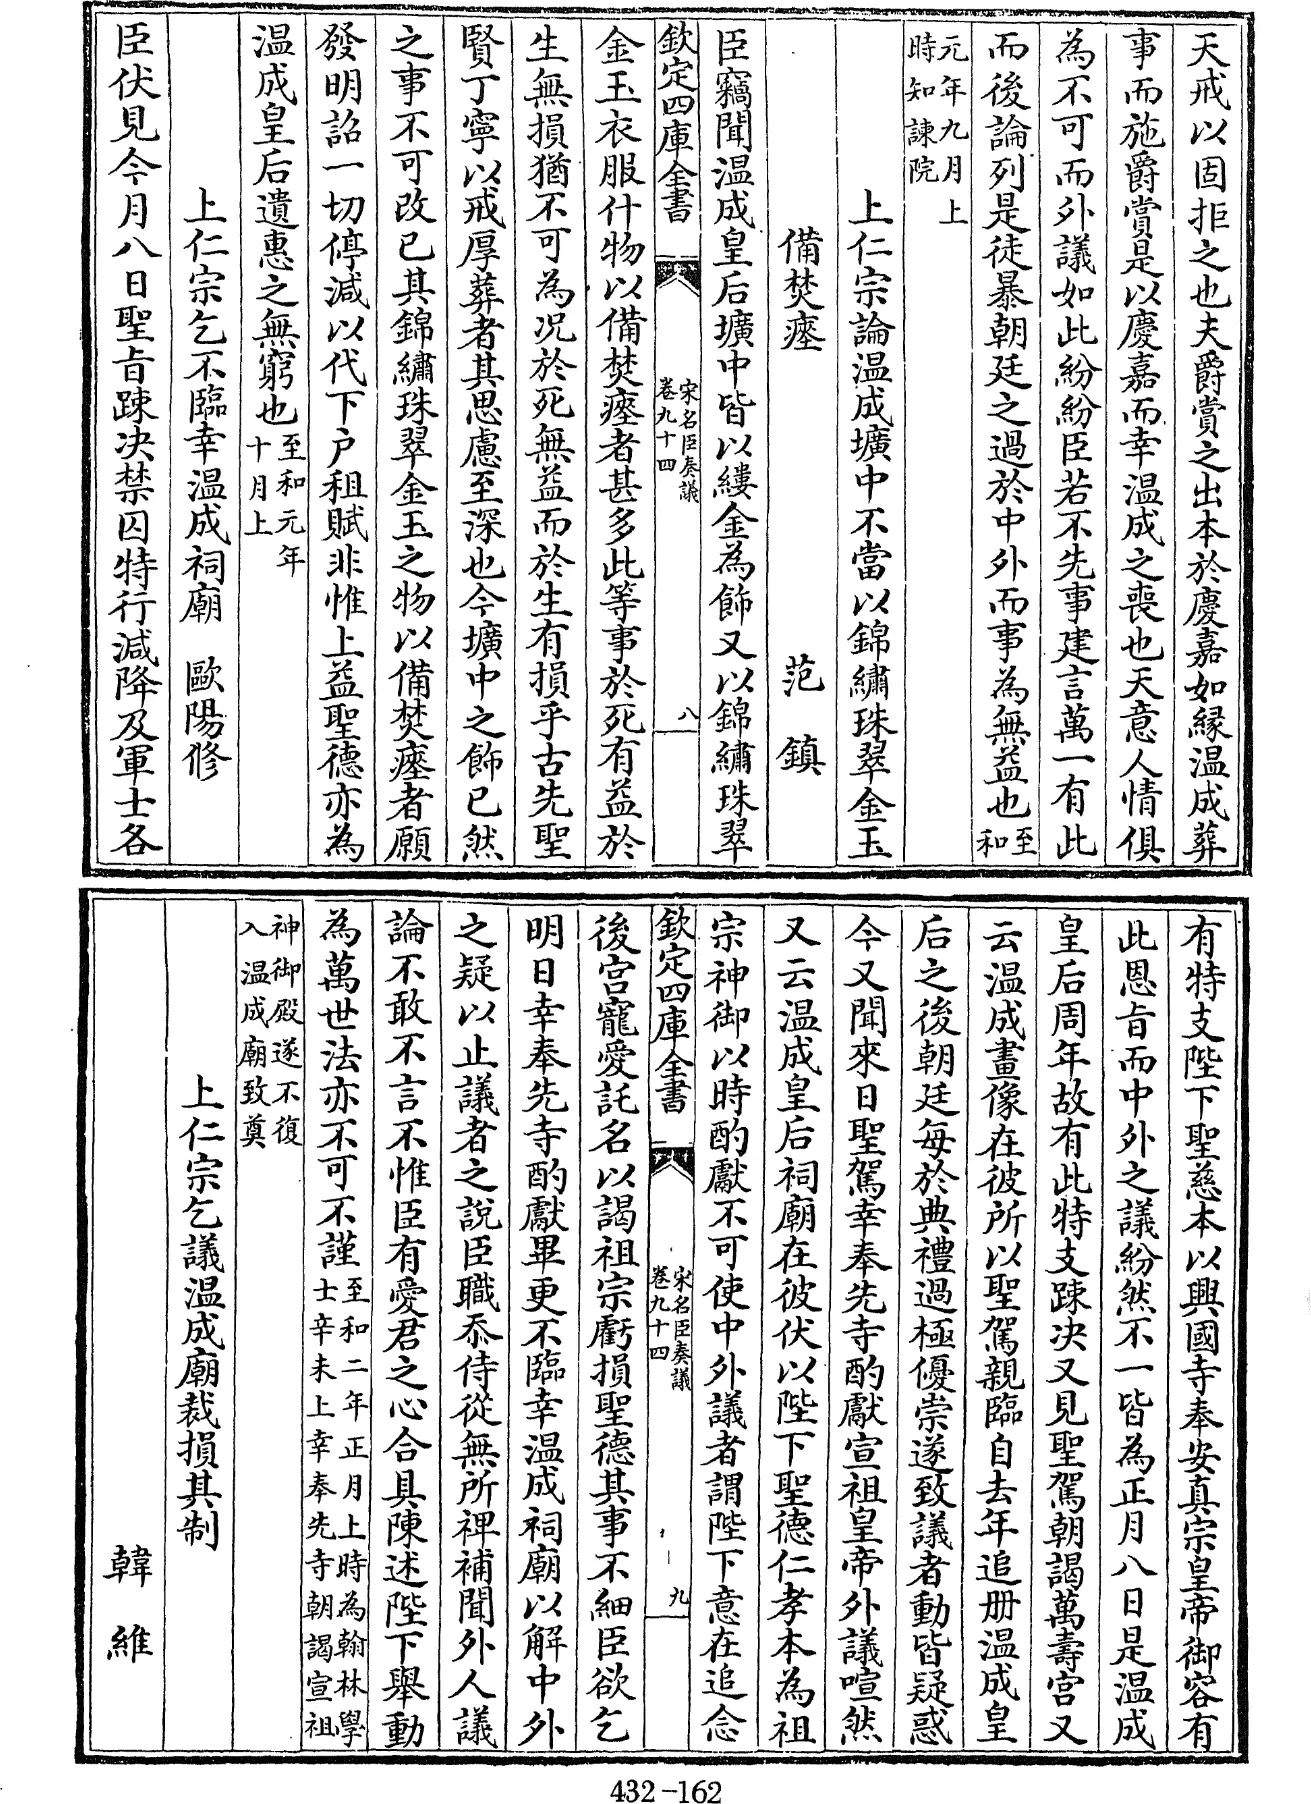 天戒以固拒之也夫爵賞之出本於慶嘉如縁温成葬
事而施爵賞是以慶嘉而幸温成之喪也天意人情俱
為不可而外議如此紛紛臣若不先事建言萬一有此
而後論列是徒暴朝廷之過於中外而事為無益也至和
元年九月上
時知諫院
上仁宗論温成壙中不當以錦繡珠翠金玉
備焚瘞 范鎮
臣竊聞温成皇后壙中皆以縷金為飾又以錦繡珠翠
欽定四庫全書 宋名臣奏議 卷九十四 八
金玉衣服什物以備焚瘞者甚多此等事於死有益於
生無損猶不可為况於死無益而於生有損乎古先聖
賢丁寧以戒厚葬者其思慮至深也今壙中之飾已然
之事不可改已其錦繡珠翠金玉之物以備焚瘞者願
發明詔一切停減以代下户租賦非惟上益聖德亦為
温成皇后遺惠之無窮也至和元年十月上
上仁宗乞不臨幸温成祠廟 歐陽修
臣伏見今月八日聖旨踈决禁囚特行減降及軍士各
有特支陛下聖慈本以興國寺奉安真宗皇帝御容有
此恩旨而中外之議紛然不一皆為正月八日是温成
皇后周年故有此特支踈决又見聖駕朝謁萬壽宫又
云温成畫像在彼所以聖駕親臨自去年追册温成皇
后之後朝廷每於典禮過極優崇遂致議者動皆疑惑
今又聞來日聖駕幸奉先寺酌獻宣祖皇帝外議喧然
又云温成皇后祠廟在彼伏以陛下聖德仁孝本為祖
宗神御以時酌獻不可使中外議者謂陛下意在追念
欽定四庫全書 宋名臣奏議 卷九十四 九
後宫寵愛託名以謁祖宗虧損聖德其事不細臣欲乞
明日幸奉先寺酌獻畢更不臨幸温成祠廟以解中外
之疑以止議者之說臣職忝侍從無所裨補聞外人議
論不敢不言不惟臣有愛君之心合具陳述陛下舉動
為萬世法亦不可不謹至和二年正月上時為翰林學士辛未上幸奉先寺朝謁宣祖
神御殿遂不復
入温成廟致奠
上仁宗乞議温成廟裁損其制
韓維
432-162